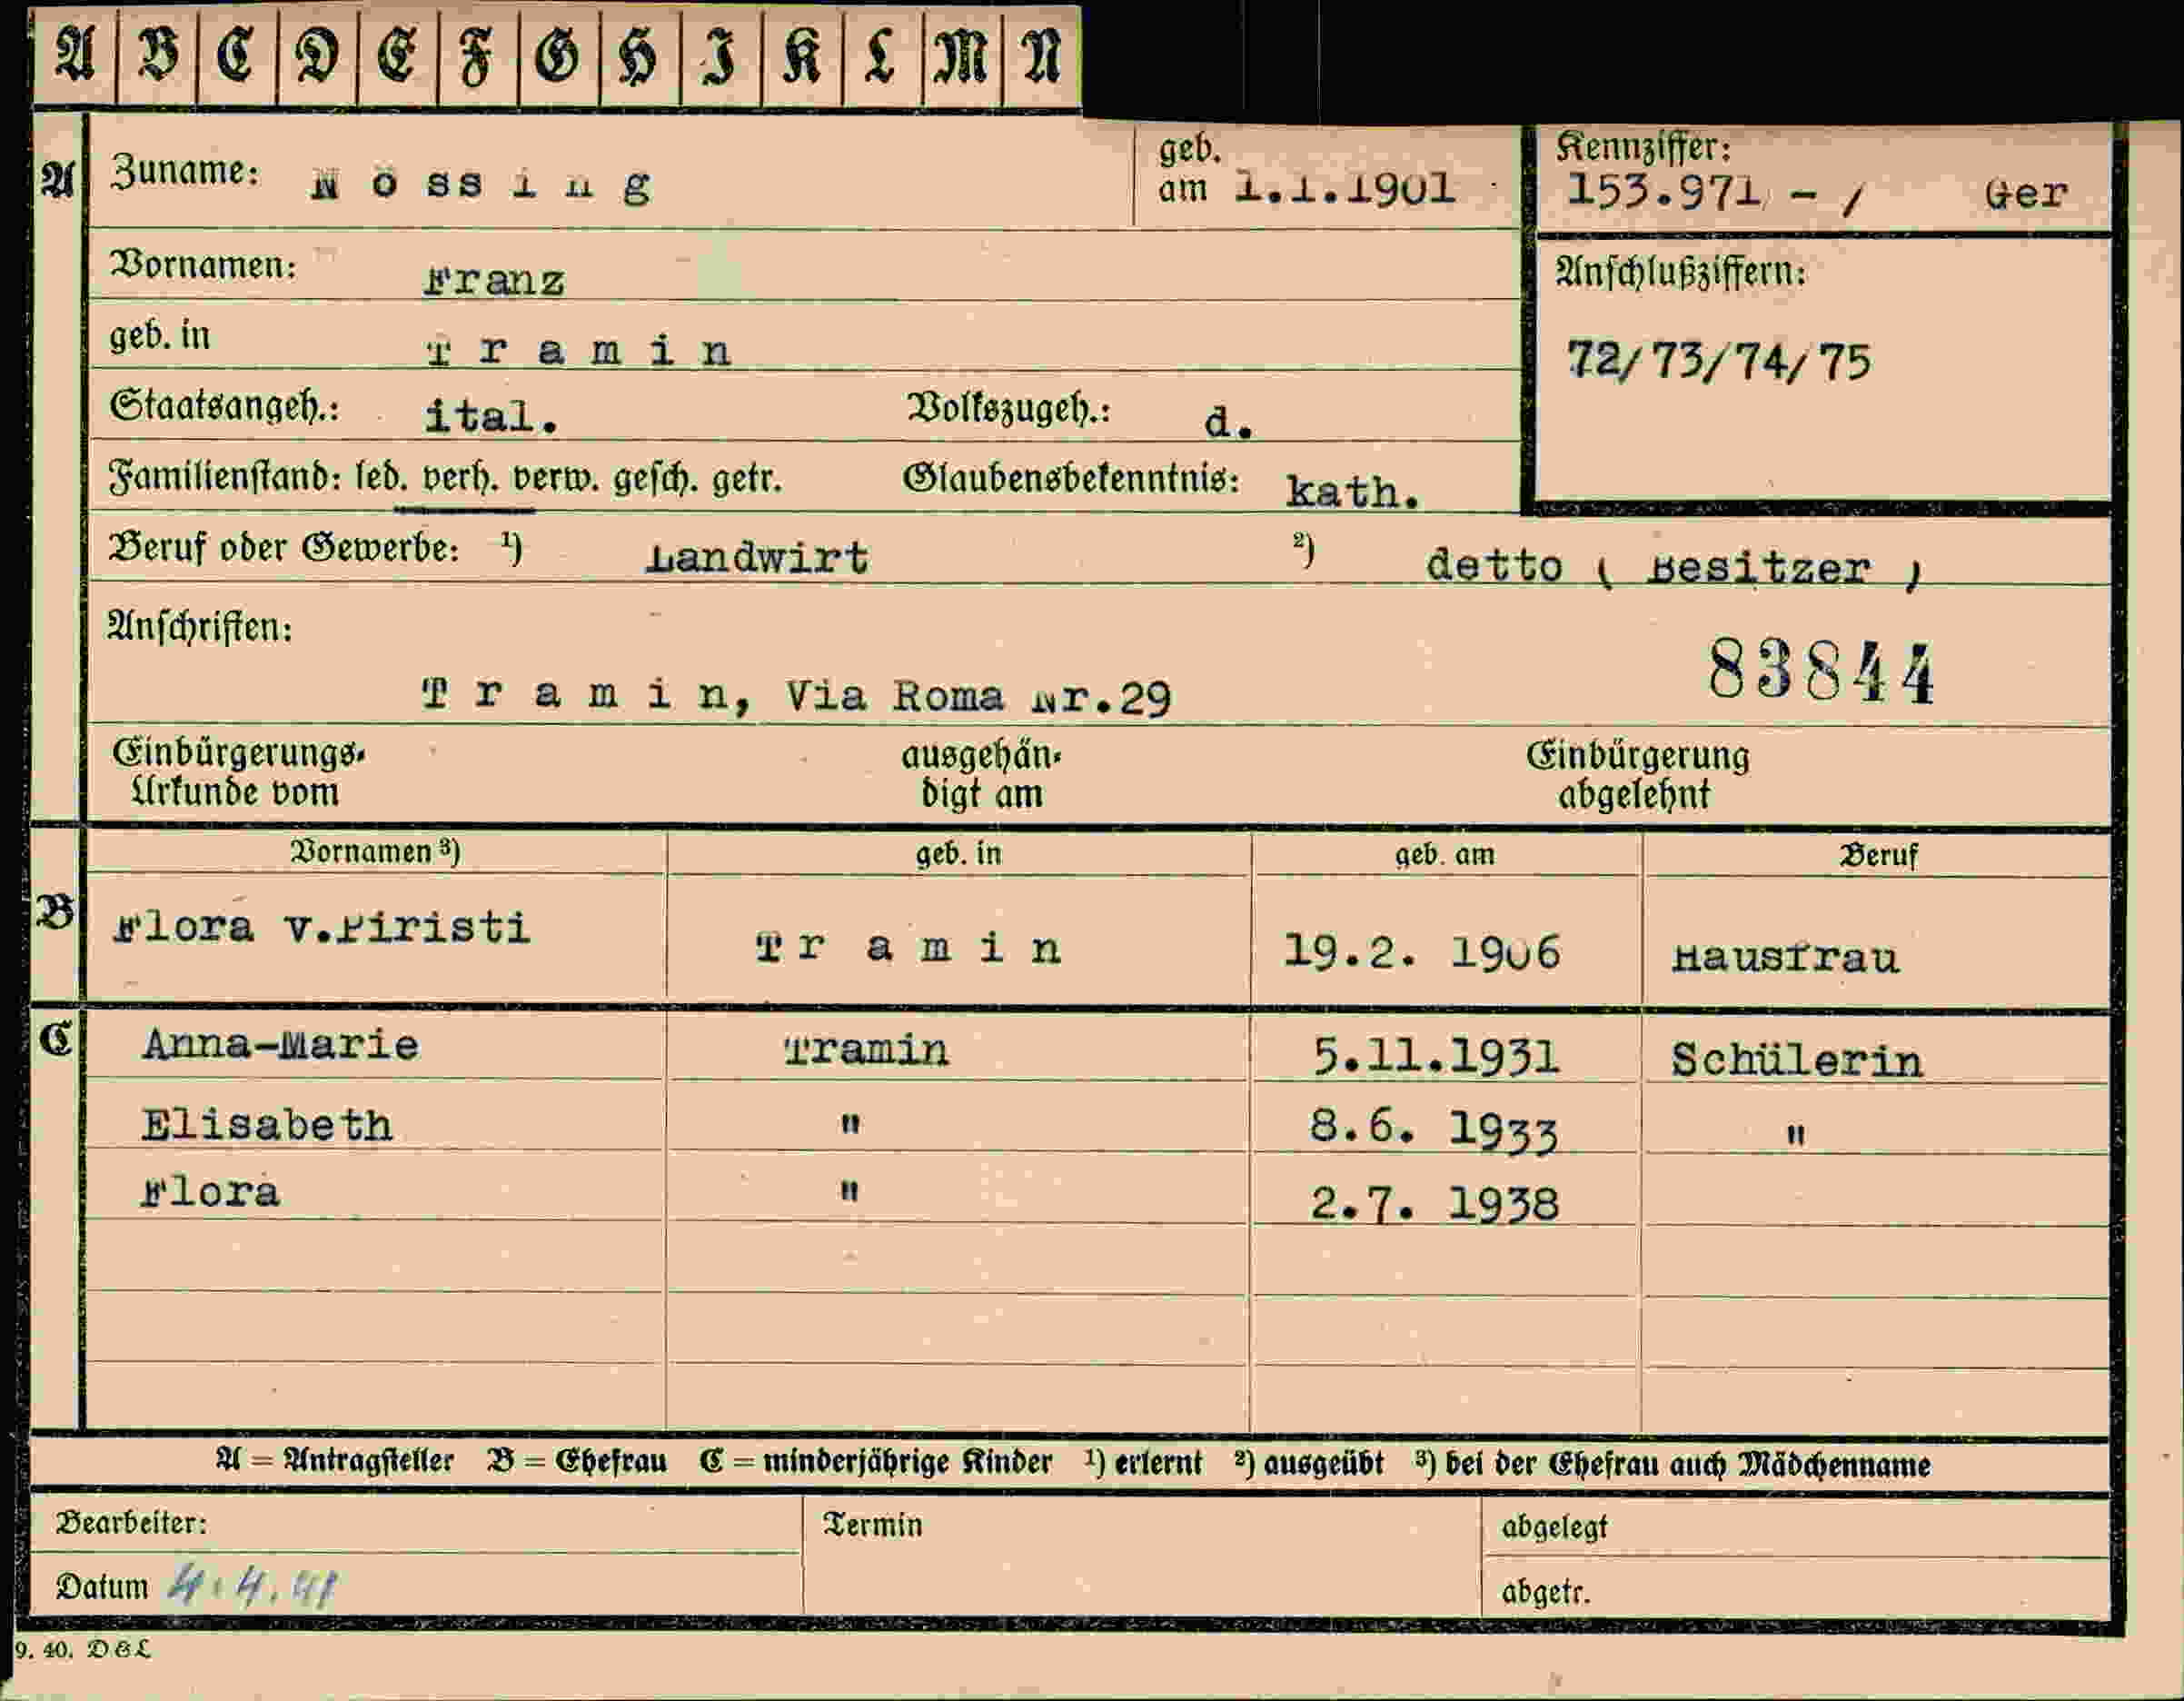 A B C D E F G H I K L M N
A Zuname: Nössing geb. am 1.1.1901
Kennziffer: 153.971 - / Ger
Vornamen: Franz
Anschlußziffern:
geb. in Tramin
72/73/74/75
Staatsangeh.: ital. Volkszugeh.: d.
Familienstand: led. verh. verw. gesch. getr. Glaubensbekenntnis: kath.
Beruf oder Gewerbe: ¹) Landwirt ²) detto ( Besitzer )
Anschriften:
83844
Tramin, Via Roma Nr.29
Einbürgerungs- ausgehän- Einbürgerung
Urkunde vom digt am abgelehnt
Vornamen ³) geb. in geb. am Beruf
B Flora v.Piristi Tramin 19.2. 1906 Hausfrau
C Anna-Marie Tramin 5.11.1931 Schülerin
Elisabeth " 8.6. 1933 "
Flora " 2.7. 1938
A = Antragsteller B = Ehefrau C = minderjährige Kinder ¹) erlernt ²) ausgeübt ³) bei der Ehefrau auch Mädchenname
Bearbeiter: Termin abgelegt
Datum 4.4.41 abgetr.
9. 40. D&L